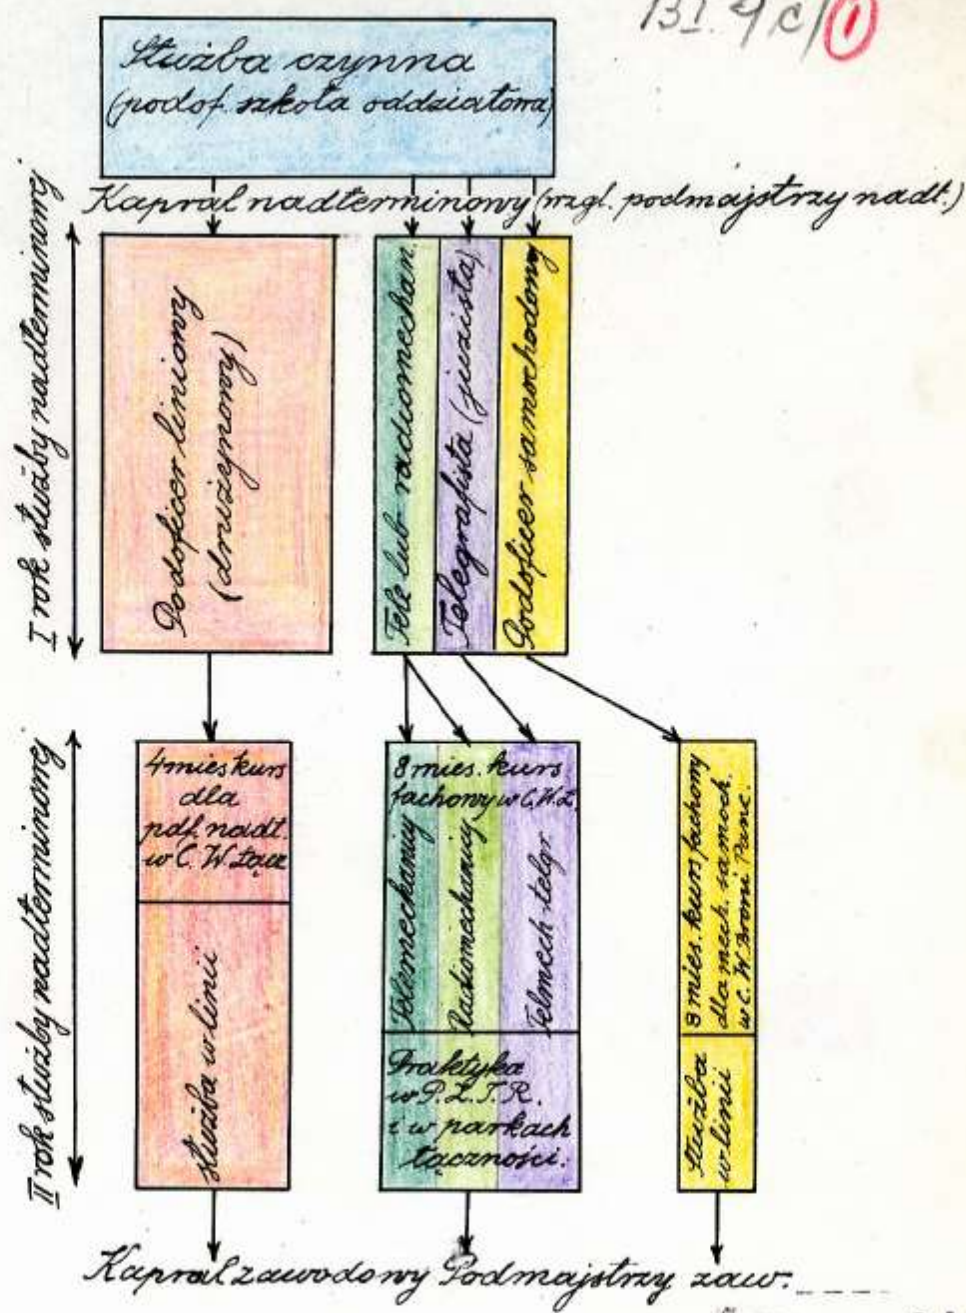 BI. 4/c/ 1
Służba czynna
(podof. szkoła oddziałowa)
Kapral nadterminowy (wzgl. podmajstrzy nadt.)
I rok służby nadterminowej
Podoficer liniowy
(drużynowy)
Tele lub radiomechan.
Telegrafista (juzista)
Podoficer samochodowy
II rok służby nadterminowej
4 mies kurs
dla
pdf. nadt.
w C. W. Łącz
służba w linii
8 mies. kurs
fachowy w C.W.Ł.
Telemechanicy
Radiomechanicy
Telmech-telgr.
Praktyka
w P.Z.T.R.
i w parkach
łączności.
8 mies. kurs fachowy
dla mech. samoch.
w C. W Broni Panc.
Służba
w linii
Kapral zawodowy Podmajstrzy zaw.